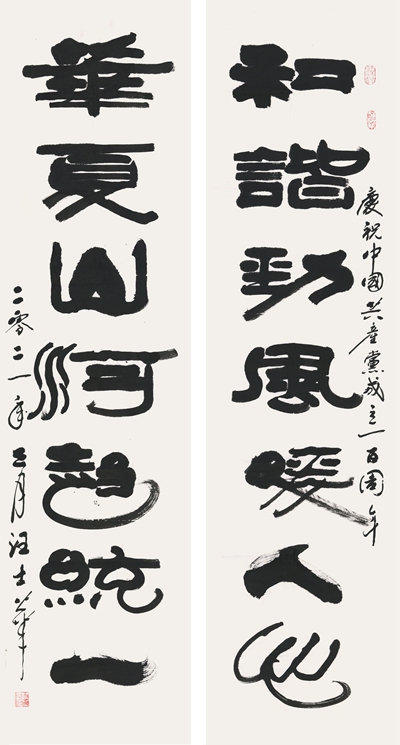 和諧勁風暖人心
慶祝中國共產黨成立一百周年
華夏山河趋統一
二零二一年三月汪士華